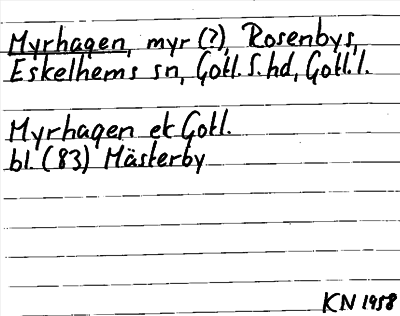 Myrhagen, myr (?), Rosenbys,
Eskelhems sn, Gotl. S. hd, Gotl. l.
Myrhagen ek Gotl.
bl. (83) Mästerby
KN 1958